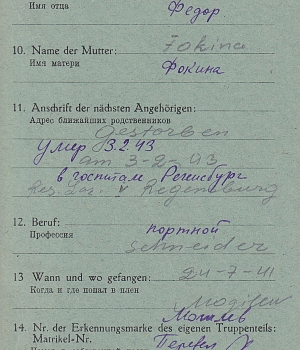 Имя отца
Федор
10. Name der Mutter: Fokina
Имя матери
Фокина
11. Anschrift der nächsten Angehörigen:
Адрес ближайших родственников
Gestorben
умер 3.2.43
am 3-2-43
в госпитале Регенсбург
Res. Laz. v Regensburg
12. Beruf: портной
Профессия
Schneider
13 Wann und wo gefangen: 24-7-41
Когда и где попал в плен
Mogilew
Могилев
14. Nr. der Erkennungsmarke des eigenen Truppenteils:
Matrikel-Nr.